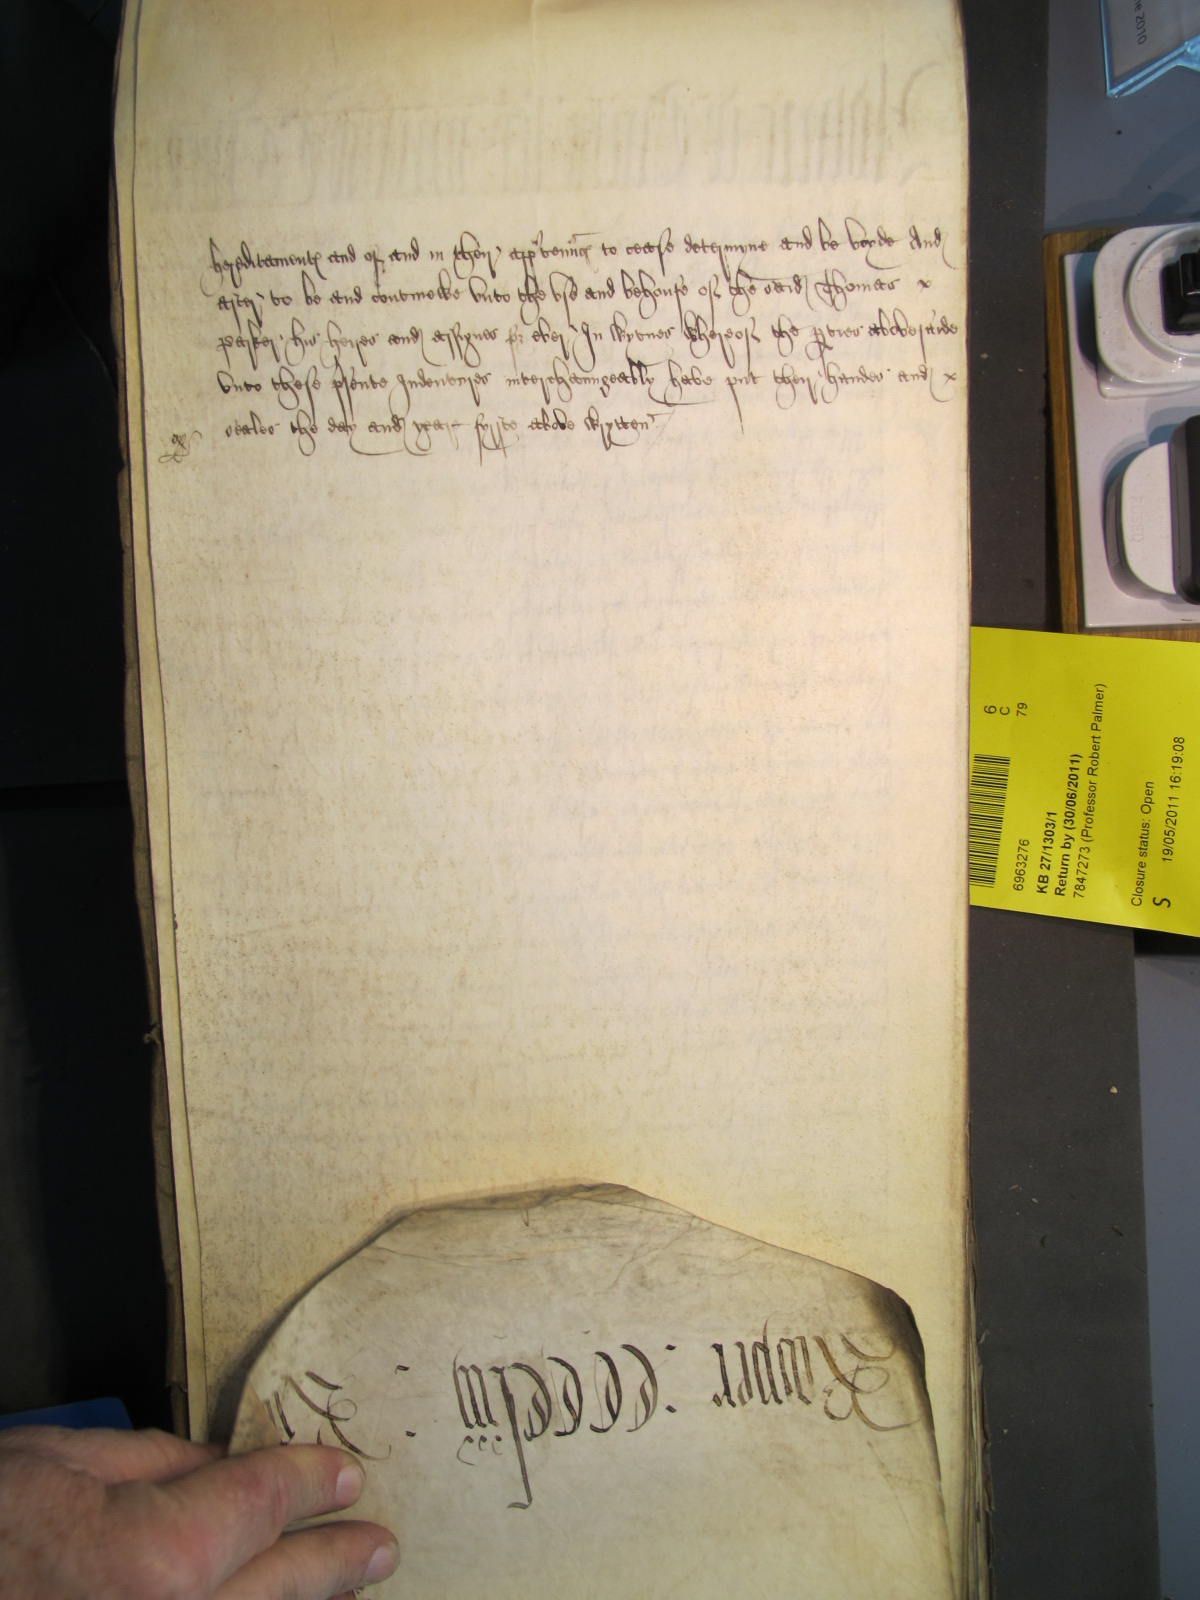 hereditamentes and of and in their apprtennces to cease determyne and be voyde And
to be and contynewe unto the use and behoufe of the said Thomas x
parker his heyres and assignes for ever In wytnes whereof the p'ties abovesaide
unto these p'sente Indentures interchaungeably have put their handes and x
seales the day and year fyrste above wrytten
Rooper : CCCC
6
C
79
6963276
KB 27/1303/1
Return by (30/06/2011)
7847273 (Professor Robert Palmer)
Closure status: Open
S
19/05/2011 16:19:08
2010